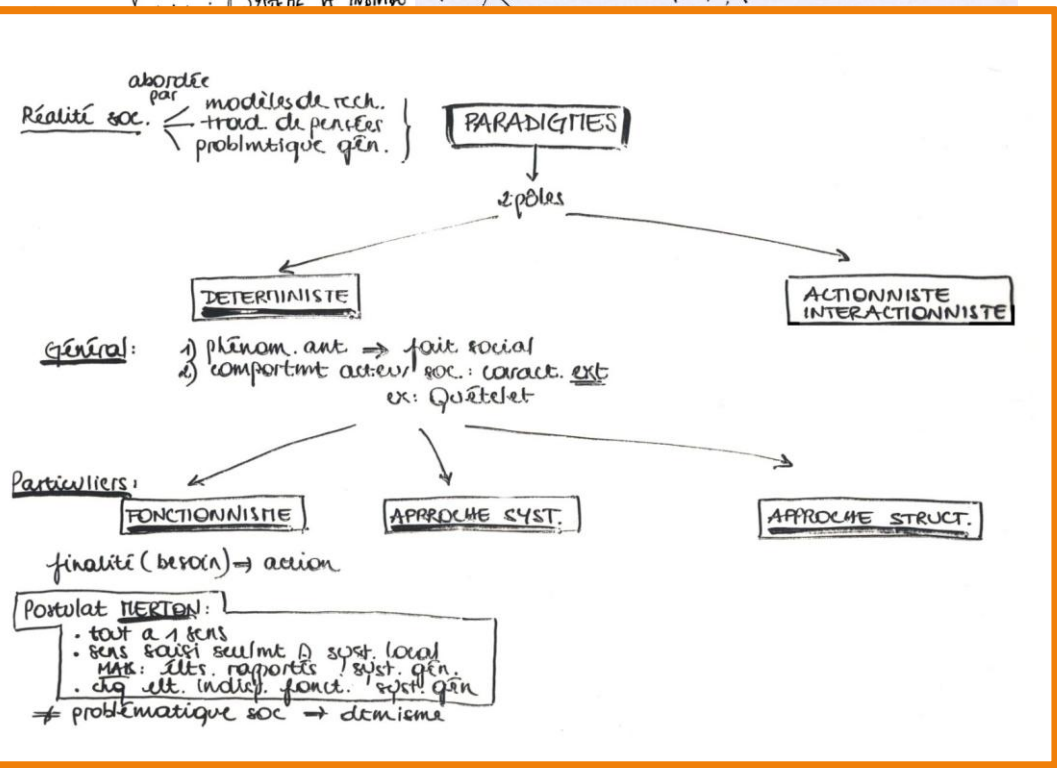 SYSTEME
abordée
par
Réalité soc.
modèles de rech.
trad. de pensées
problmtique gén.
PARADIGMES
2 pôles
DETERMINISTE
ACTIONNISTE
INTERACTIONNISTE
Général:
1) phénom. ant. ⇒ fait social
2) comportmt acteur soc.: caract. ext
ex: Quételet
Particuliers:
FONCTIONNISME
APPROCHE SYST.
APPROCHE STRUCT.
finalité (besoin) ⇒ action
Postulat MERTON:
• tout a 1 sens
• sens saisi seulmt syst. local
élts. raportés syst. gén.
• chq elt. indisp. fonct. syst. gén
≠ problématique soc → dtmisme